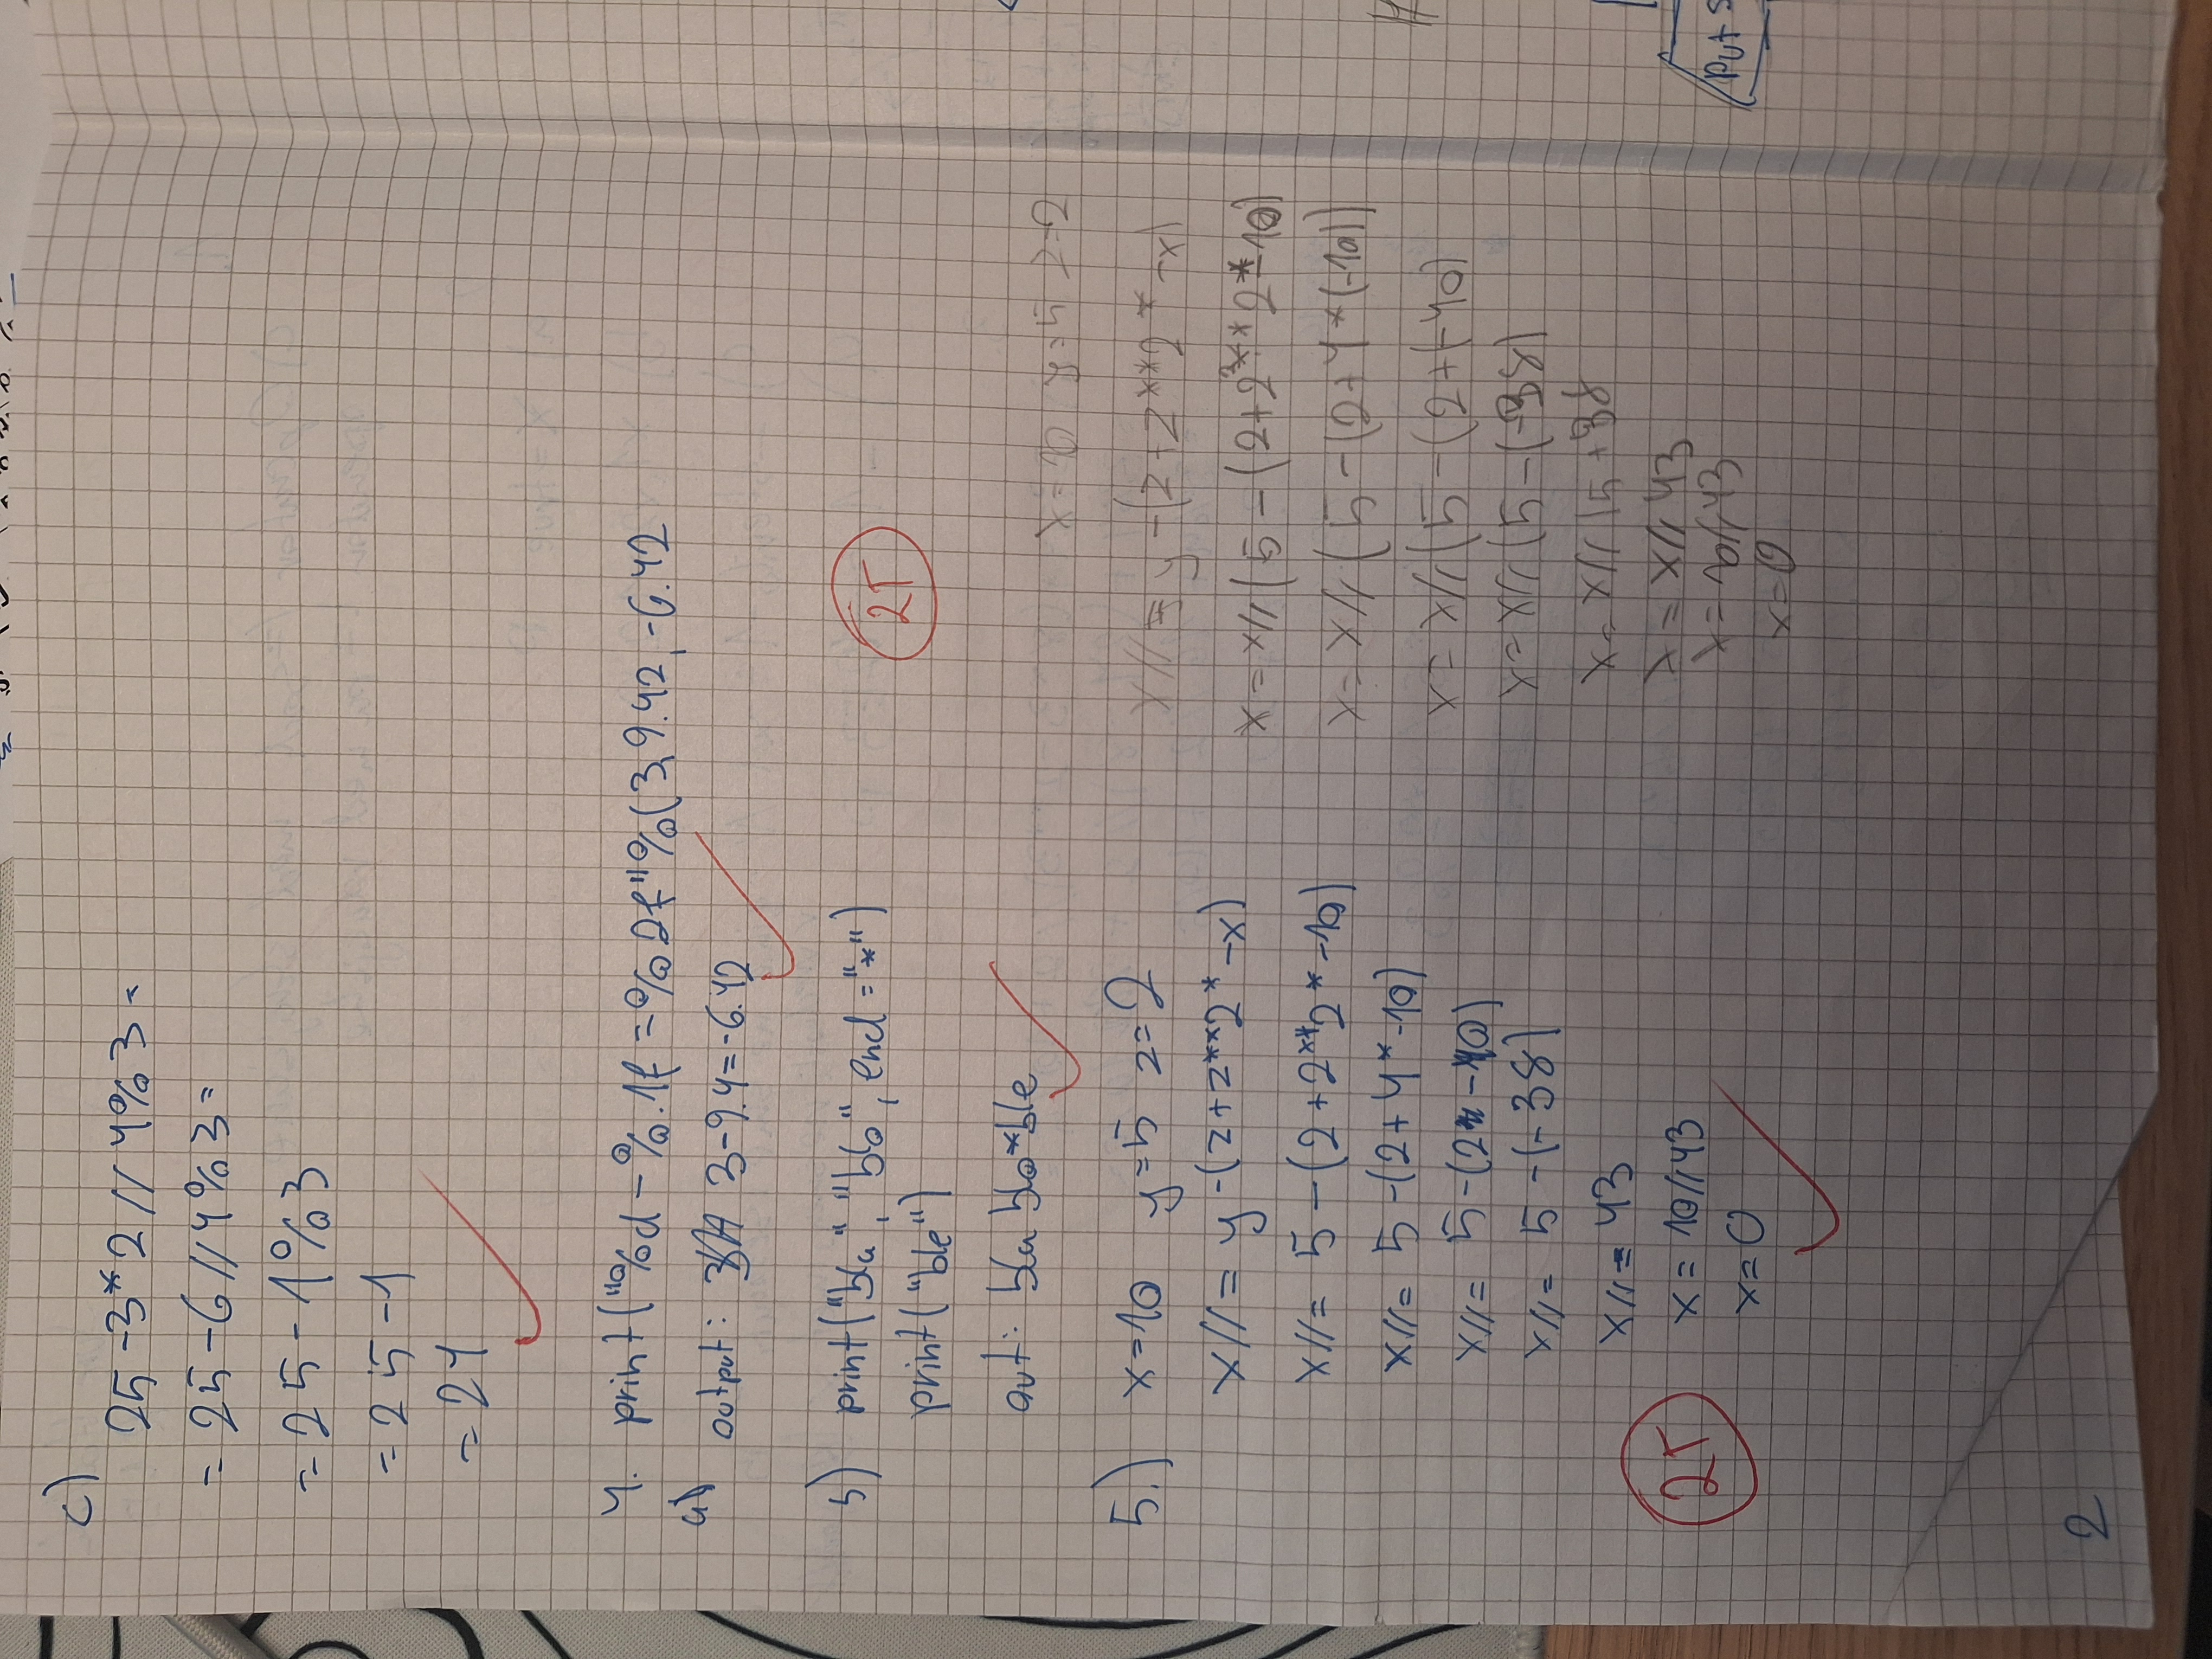 c)
25-3*2//4%3=
= 25-6//4%3=
= 25-1%3
= 25-1
= 24
4. print("%d-%.1f=%2f"%(3,9.42,-6.42
a)
output: 3-9.4=-6.42
b) print("bla", "blo", end="*")
print("ble")
2T
out: bla blo*ble
5.) x=10 y=5 z=2
x//= y-(z+z**2*-x)
x//= 5-(2+2**2*-10)
x//= 5-(2+4*-10)
x//= 5-(2-40)
x//= 5-(-38)
x//= 43
x= 10//43
x=0
2T
x=10 y=5 z=2
x//= y-(z+z**2*-x)
x=x//(5-(2+2**2*-10)
x=x//(5-(2+4*(-10))
x=x//(5-(2+(-40)
x=x//(5-(-38)
x=x//(5+38
x=x//43
x=10//43
x=0
put s
2